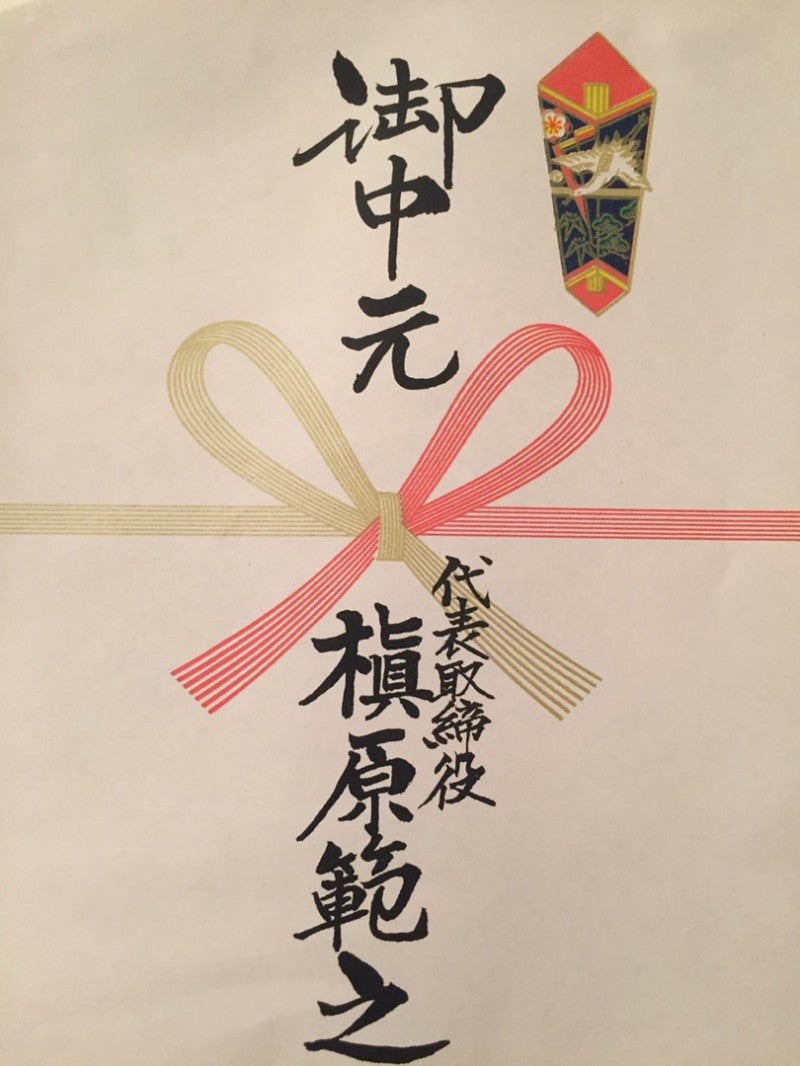 御中元
代表取締役
槇原範之